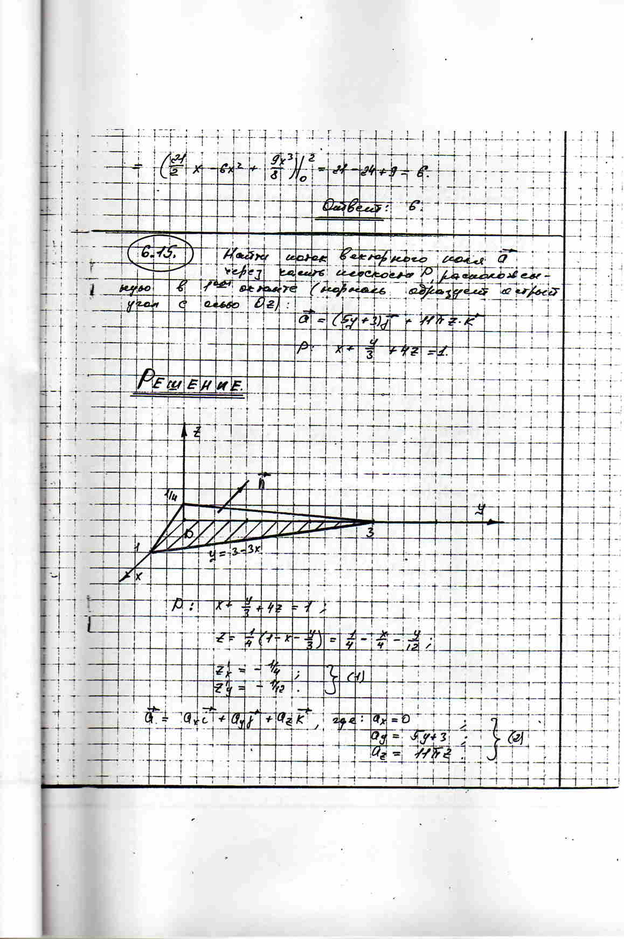 = (21/2 x - 6x² + 9x³/8)|₀² = 21 - 24 + 9 = 6.
Ответ: 6.
6.15. Найти поток векторного поля a⃗
через часть плоскости P расположен-
ную в 1ом октанте (нормаль образует острый
угол с осью Oz):
a⃗ = (5y+3)j⃗ + 11πz·k⃗
P: x + y/3 + 4z = 1.
РЕШЕНИЕ.
z
1/4
n⃗
y
D
3
1
y=3-3x
x
P: x + y/3 + 4z = 1 ;
z = 1/4 (1 - x - y/3) = 1/4 - x/4 - y/12 ;
z'x = - 1/4 ; } (1)
z'y = - 1/12 .
a⃗ = axi⃗ + ayj⃗ + azk⃗ , где: ax = 0 ;
ay = 5y+3 ; } (2)
az = 11πz .